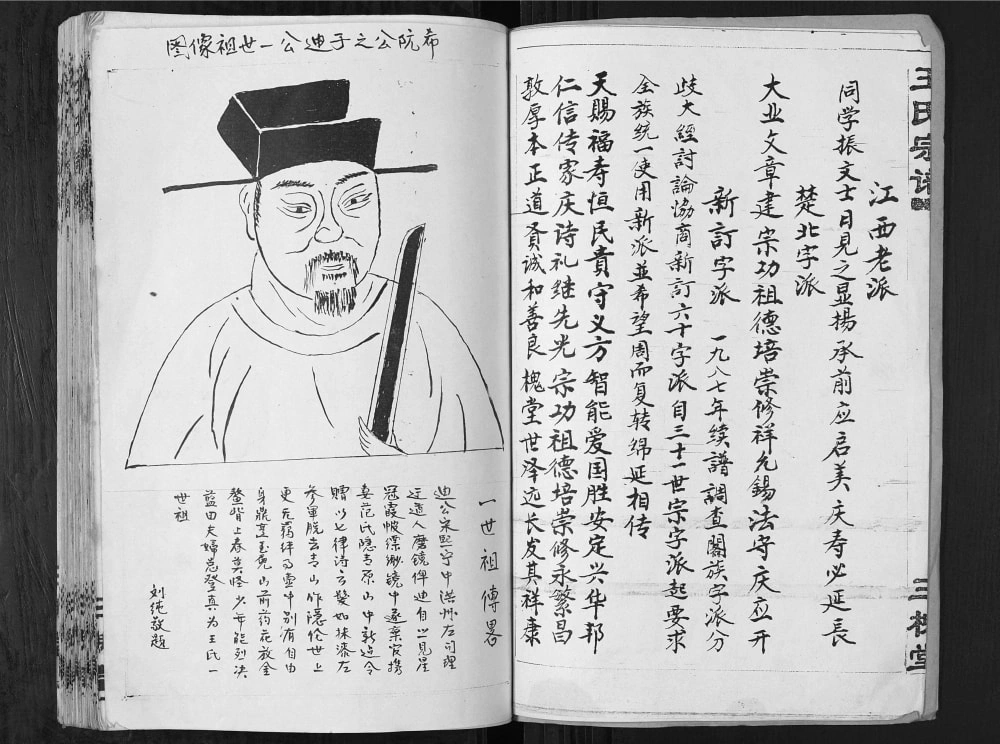 王氏宗谱
三槐堂
江西老派
同学振文士目见之显揚承前应启美庆寿必延長
楚北字派
大业文章建宗功祖德培崇修祥允錫法守庆应开
新訂字派 一九八七年续譜調查閤族字派分
歧大經討論協商新訂六十字派自三十一世宗字派起要求
全族统一使用新派並希望周而复转绵延相传
天賜福寿恒民責守义方智能爱国胜安定兴华邦
仁信传家庆诗礼继先光宗功祖德培崇修永繁昌
敦厚本正道贤诚和善良槐堂世泽远长发其祥康
希阮公之子迪公一世祖像图
一世祖傳畧
迪公宋熙宁中洪州左司理
遇人磨镜俾迪自照见星
冠霞帔缥缈镜中遂棄官携
妻范氏隐青原山中
赠以七律诗云髮如抹漆左
参軍脱去青山作隐伦世上
更无羁绊事壶中别有自由
身鼎烹玉兔山前药花放金
鳌背上春莫怪少年能列决
蓝田夫婦总登真为王氏一
世祖
刘纯敬题